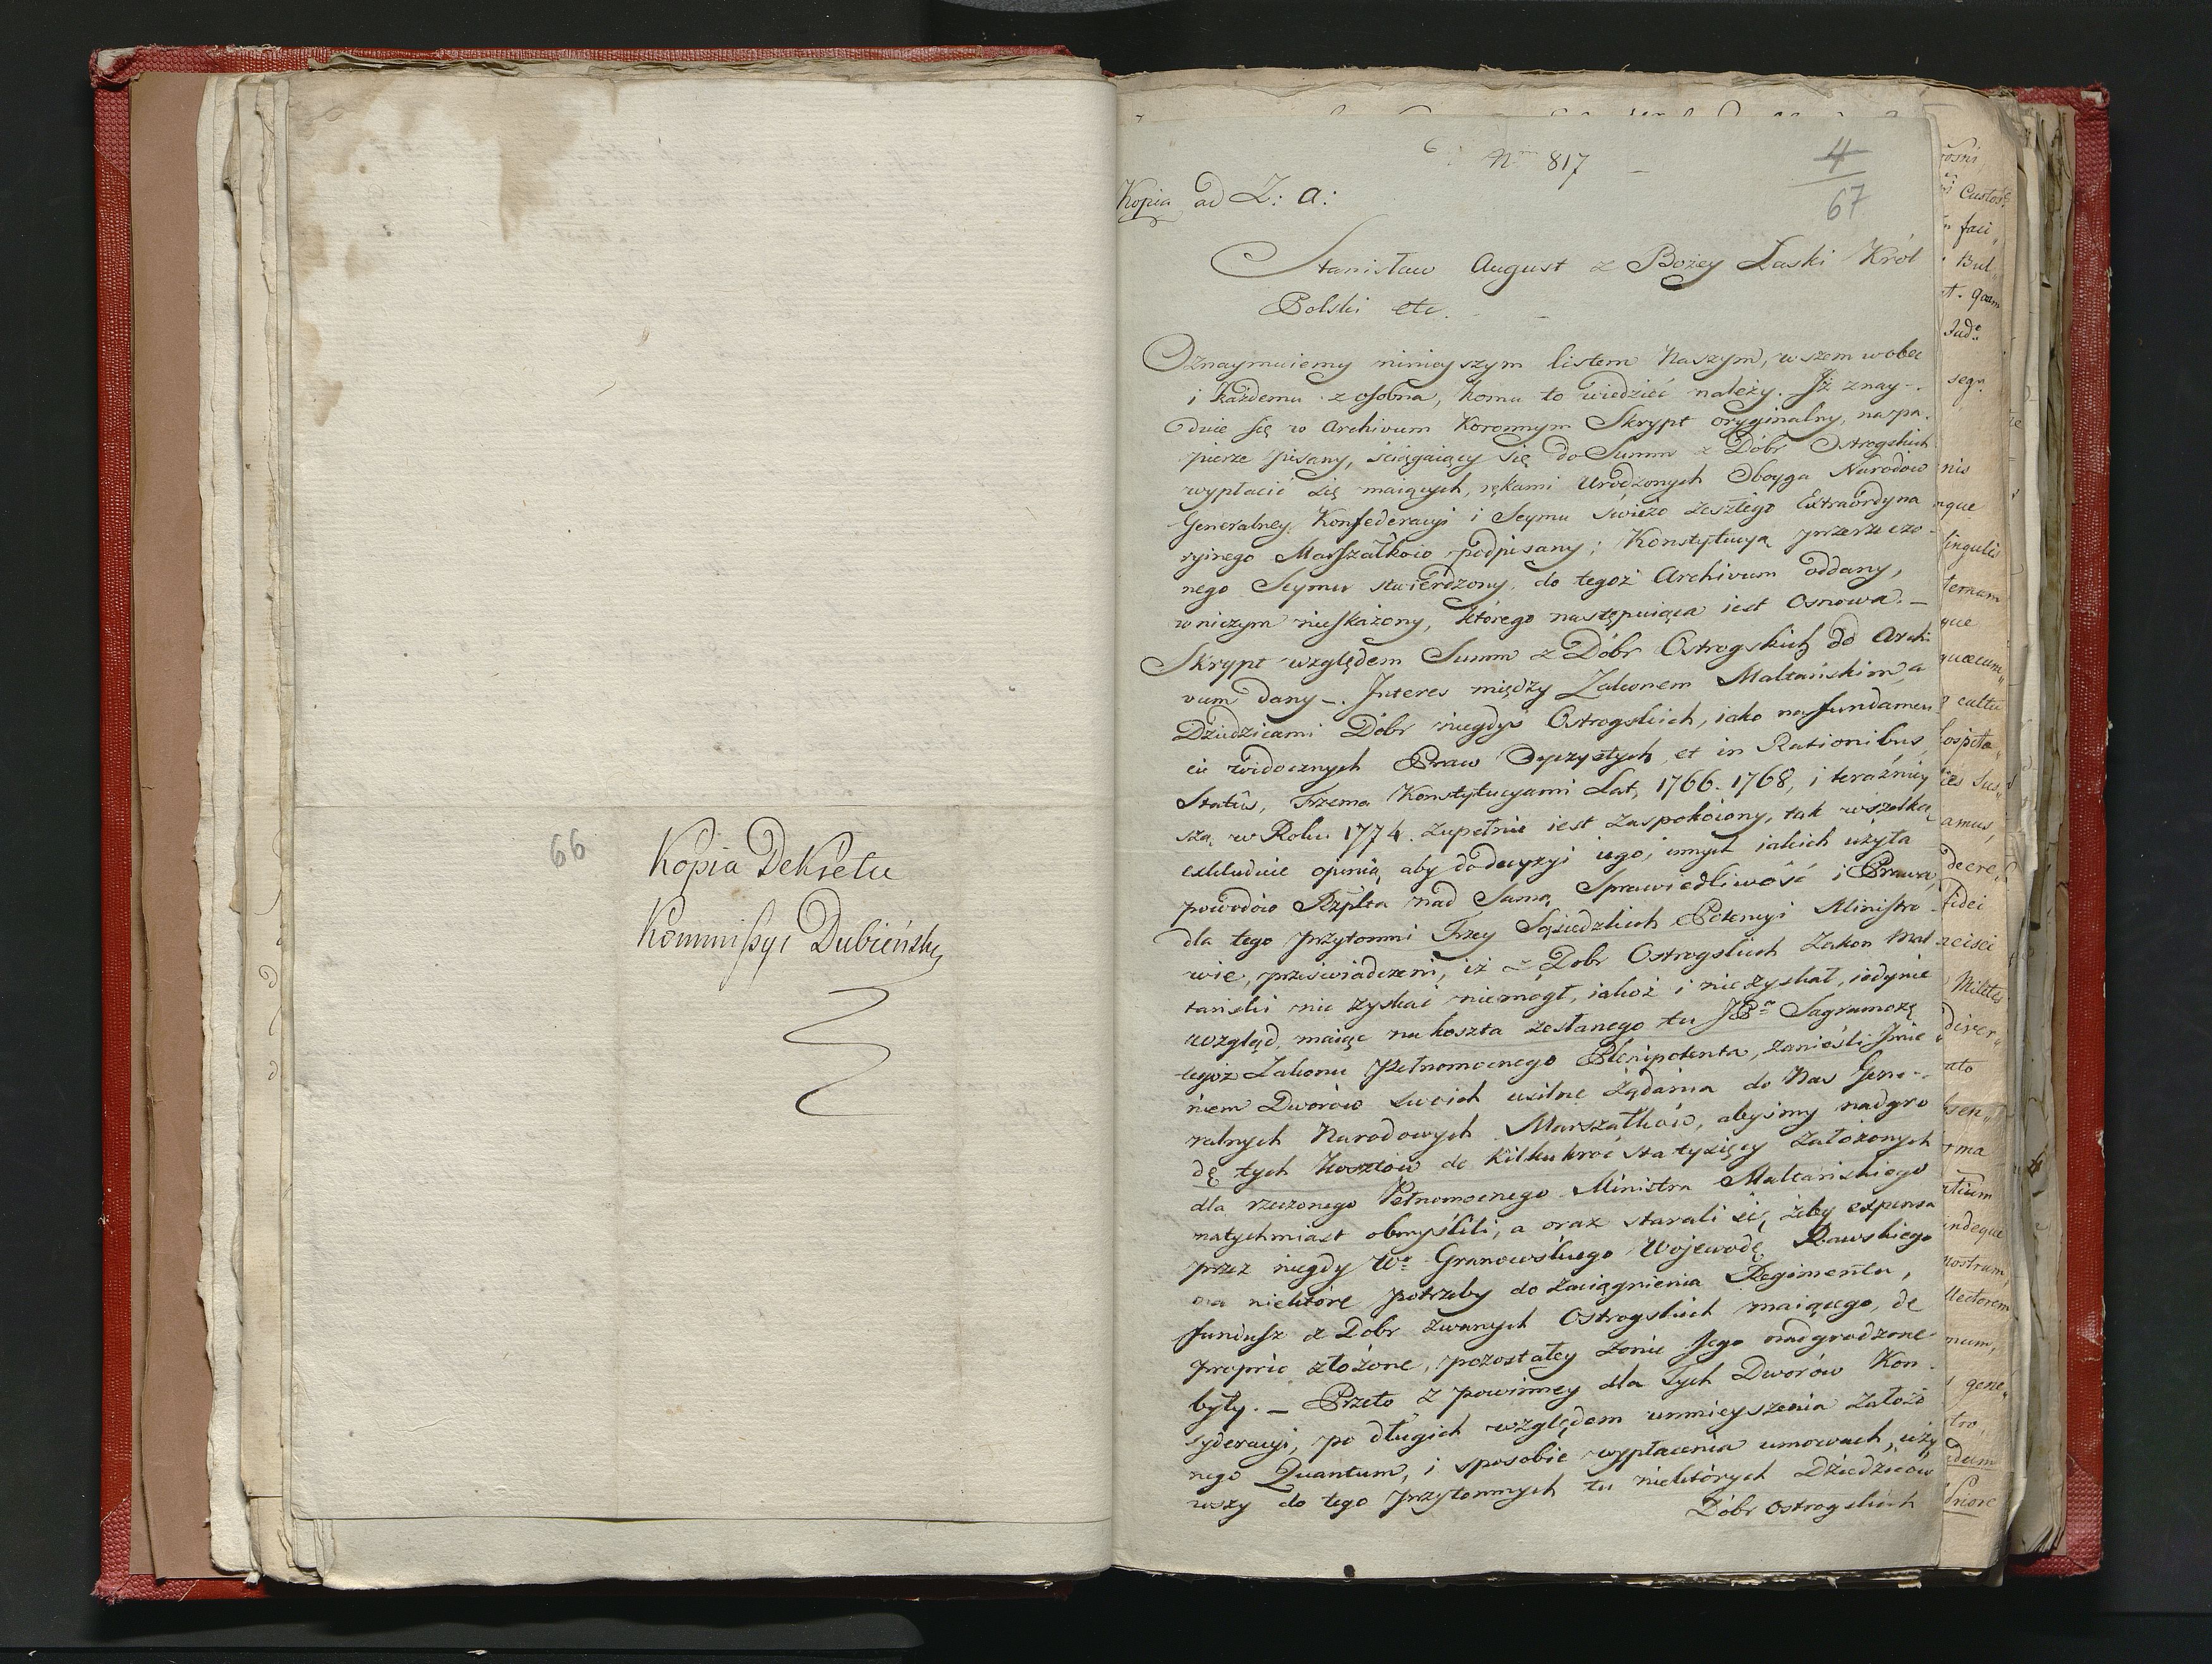 66
Kopia Dekretu
Kommissyi Dubieńsky
Nro 817
4
67
Kopia ad L: a:
Stanisław August z Bożey Łaski Król
Polski etc.
Oznaymuiemy ninieyszym listem Naszym, wszem wobec
i każdemu z osobna, komu to wiedzieć należy. Iż znay-
duie się w Archivum Koronnym Skrypt oryginalny, na pa-
pierze pisany, sciągaiący się do Summ z Dóbr Ostrogskich
wypłacić się maiących, rękami Urodzonych Oboyga Narodow
Generalney Konfederacyi i Seymu swieżo zeszłego Extraordyna
ryinego Marszałkow podpisany; Konstytucyą przerzeczo-
nego Seymu stwierdzony, do tegoż Archivum oddany,
w niczym nieskażony, którego następuiąca iest Osnowa. –
Skrypt względem Summ z Dóbr Ostrogskich do Archi
vum dany –. Interes między Zakonem Maltańskim, a
Dziedzicami Dóbr niegdyś Ostrogskich, iako na fundamen
cie widocznych Praw Oyczystych, et in Rationibus
Statûs, Trzema Konstytucyami Lat, 1766. 1768, i teraźniey
szą w Roku 1774. zupełnie iest zaspokoiony, tak wszelką
exkluduie opinią, aby do decyzyi iego, innych iakich użyła
powodów Rzplta nad Samą Sprawiedliwość i Prawa,
dla tego przytomni Trzey Sąsiedzkich Potencyi Ministro
wie, przeswiadczeni, iż z Dobr Ostrogskich Zakon Mal
tański nic zyskać niemogł, iakoż i nie zyskał, iedynie
wzgląd maiąc na koszta zesłanego tu JPa Sagramozę
tegoż Zakonu Pełnomocnego Plenipotenta, zanieśli Imie
niem Dworów swoich usilne żądania do Nas Gene-
ralnych Narodowych Marszałków, abyśmy nadgro
dę tych kosztów do kilkukroć sta tysięcy założonych
dla rzeczonego Pełnomocnego Ministra Maltańskiego
natychmiast obmyślili, a oraz starali się, żeby expensa
przez niegdy Wo Granowskiego Wojewodę Rawskiego
na niektóre potrzeby do zaciągnienia Regimentu,
fundusz z Dobr zwanych Ostrogskich maiącego, de
proprio złożone, pozostałey żonie Jego nadgrodzone
były. – Przeto z powinney dla tych Dworów Kon-
syderacyi, po długich względem umnieyszenia założo
nego Quantum, i sposobie wypłacenia umowach, uży
wszy do tego przytomnych tu niektórych Dziedziców
Dóbr Ostrogskich